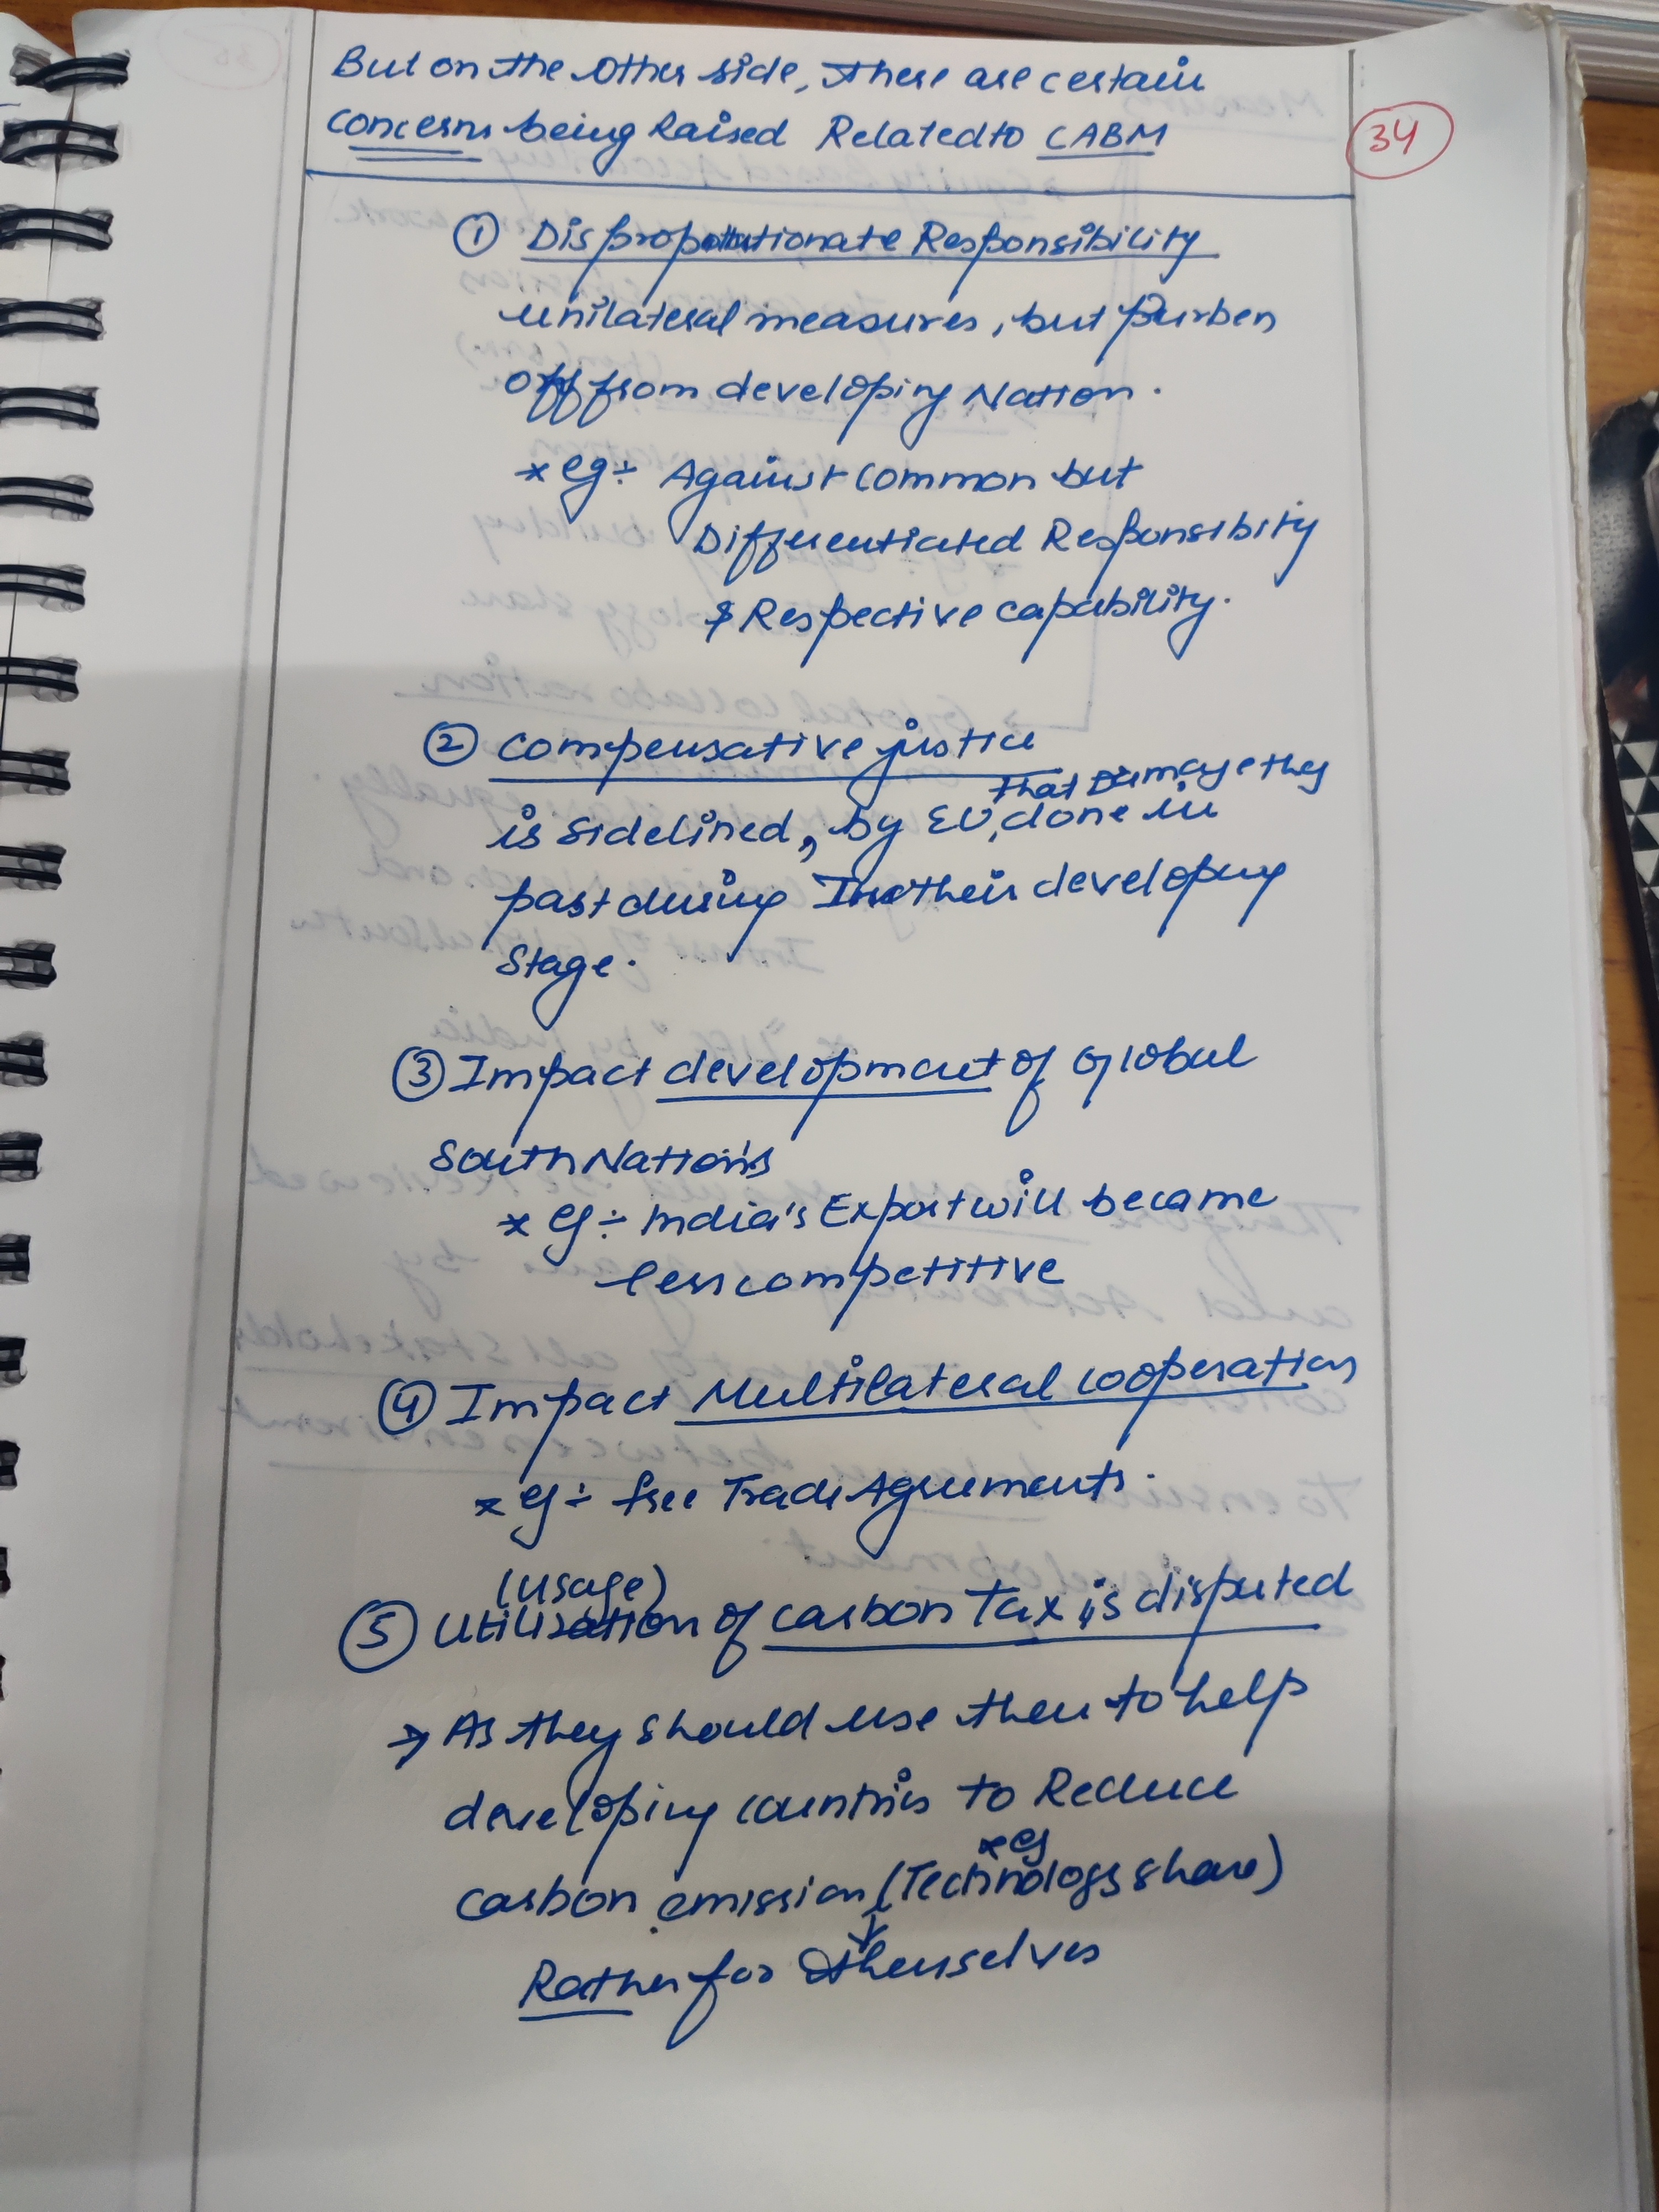 But on the other side, there are certain
34
concerns being Raised Related to CABM
① Disproportionate Responsibility
unilateral measures, but Burben
off from developing Nation.
* eg ÷ Against Common but
Differentiated Responsibity
& Respective capability.
② compensative justice
that Damage they
is sidelined, by EU, done in
past during their developing
Stage.
③ Impact development of Global
South Nation's
* eg ÷ India's Export will became
less competitive
④ Impact Multilateral cooperation
* eg ÷ free Trade Agreements.
(Usage)
⑤ Utilization of carbon Tax is disputed
→ As they should use them to help
developing countries to Reduce
* eg
carbon emission (Technology share)
Rather for themselves